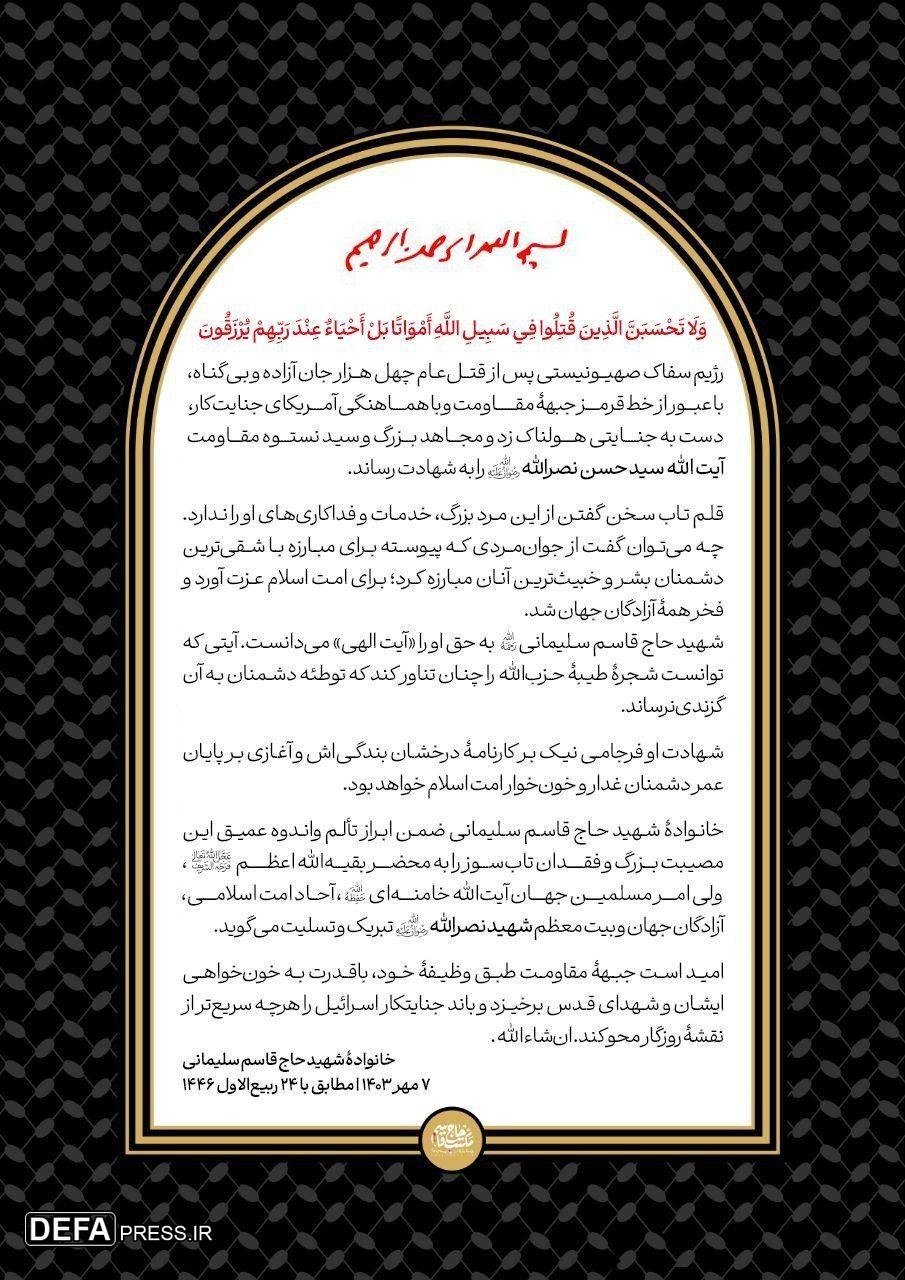 بسم الله الرحمن الرحیم
وَلَا تَحْسَبَنَّ الَّذِينَ قُتِلُوا فِي سَبِيلِ اللَّهِ أَمْوَاتًا بَلْ أَحْيَاءٌ عِنْدَ رَبِّهِمْ يُرْزَقُونَ
رژیم سفاک صهیونیستی پس از قتل‌عام چهل هزار جان آزاده و بی‌گناه،
با عبور از خط قرمز جبههٔ مقاومت و با هماهنگی آمریکای جنایت‌کار،
دست به جنایتی هولناک زد و مجاهد بزرگ و سید نستوه مقاومت
آیت الله سید حسن نصرالله رضوان‌الله‌علیه را به شهادت رساند.
قلم تاب سخن گفتن از این مرد بزرگ، خدمات و فداکاری‌های او را ندارد.
چه می‌توان گفت از جوان‌مردی که پیوسته برای مبارزه با شقی‌ترین
دشمنان بشر و خبیث‌ترین آنان مبارزه کرد؛ برای امت اسلام عزت آورد و
فخر همهٔ آزادگان جهان شد.
شهید حاج قاسم سلیمانی رحمه‌الله به حق او را «آیت الهی» می‌دانست. آیتی که
توانست شجرهٔ طیبهٔ حزب‌الله را چنان تناور کند که توطئه دشمنان به آن
گزندی نرساند.
شهادت او فرجامی نیک بر کارنامهٔ درخشان بندگی‌اش و آغازی بر پایان
عمر دشمنان غدار و خون‌خوار امت اسلام خواهد بود.
خانوادهٔ شهید حاج قاسم سلیمانی ضمن ابراز تألم و اندوه عمیق این
مصیبت بزرگ و فقدان تاب‌سوز را به محضر بقیه‌الله اعظم عجل‌الله‌تعالی‌فرجه‌الشریف،
ولی امر مسلمین جهان آیت‌الله خامنه‌ای حفظه‌الله، آحاد امت اسلامی،
آزادگان جهان و بیت معظم شهید نصرالله رضوان‌الله‌علیه تبریک و تسلیت می‌گوید.
امید است جبههٔ مقاومت طبق وظیفهٔ خود، باقدرت به خون‌خواهی
ایشان و شهدای قدس برخیزد و باند جنایتکار اسرائیل را هرچه سریع‌تر از
نقشهٔ روزگار محو کند. ان‌شاءالله.
خانوادهٔ شهید حاج قاسم سلیمانی
۷ مهر ۱۴۰۳ | مطابق با ۲۴ ربیع‌الاول ۱۴۴۶
مکتب حاج قاسم
DEFA PRESS.IR